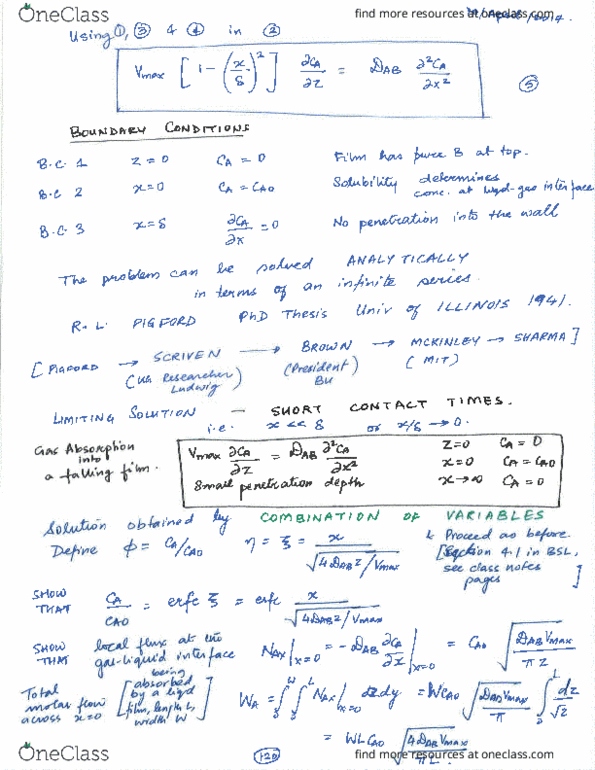 OneClass
find more resources at oneclass.com
Using ①, ③ & ④ in ②
Vmax [1 - (x/δ)²] ∂CA/∂z = DAB ∂²CA/∂x² ⑤
BOUNDARY CONDITIONS
B.C. 1 z = 0 CA = 0 Film has pure B at top.
B.C 2 x = 0 CA = CAO Solubility determines
conc. at liqd-gas interface
B.C. 3 x = δ ∂CA/∂x = 0 No penetration into the wall
The problem can be solved ANALYTICALLY
in terms of an infinite series.
R. L. PIGFORD PhD Thesis Univ of ILLINOIS 1941.
[PIGFORD → SCRIVEN → BROWN → MCKINLEY → SHARMA]
(Researcher Ludwig) (President BU) (MIT)
LIMITING SOLUTION — SHORT CONTACT TIMES.
i.e. x << δ or x/δ → 0.
Gas Absorption
into
a falling film.
Vmax ∂CA/∂z = DAB ∂²CA/∂x² z = 0 CA = 0
x = 0 CA = CAO
Small penetration depth x → ∞ CA = 0
Solution obtained by COMBINATION OF VARIABLES
Define φ = CA/CAO η = ξ = x/√(4DABz/Vmax)
& Proceed as before.
[Section 4.1 in BSL,
see class notes
pages ]
SHOW THAT CA/CAO = erfc ξ = erfc x/√(4DABz/Vmax)
SHOW THAT local flux at the
gas-liquid interface NAx|x=0 = -DAB ∂CA/∂x|x=0 = CAO √(DAB Vmax/πz)
Total
molar flow
across x=0
[being
absorbed
by a liqd
film, length L,
width W]
WA = ∫₀ᵂ ∫₀ᴸ NAx|x=0 dzdy = WCAO √(DAB Vmax/π) ∫₀ᴸ dz/√z
= WLCAO √(4DAB Vmax/πL)
120
OneClass
find more resources at oneclass.com